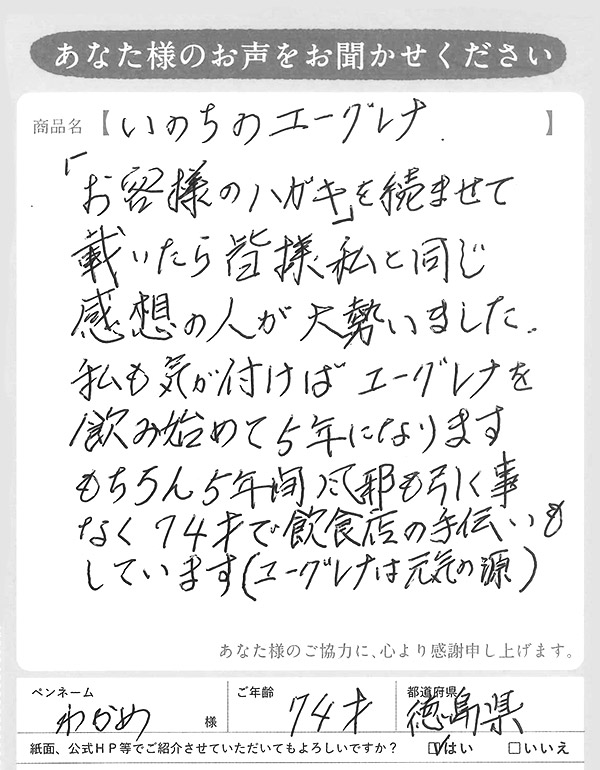 あなた様のお声をお聞かせください
商品名【いのちのユーグレナ】
「お客様のハガキ」を続ませて
載いたら皆様私と同じ
感想の人が大勢いました。
私も気が付けばユーグレナを
飲み始めて5年になります
もちろん5年間風邪も引く事
なく74才で飲食店の手伝いも
しています(ユーグレナは元気の源)
あなた様のご協力に、心より感謝申し上げます。
ペンネーム わかめ 様 ご年齢 74才 都道府県 徳島県
紙面、公式HP等でご紹介させていただいてもよろしいですか? ☑はい □いいえ